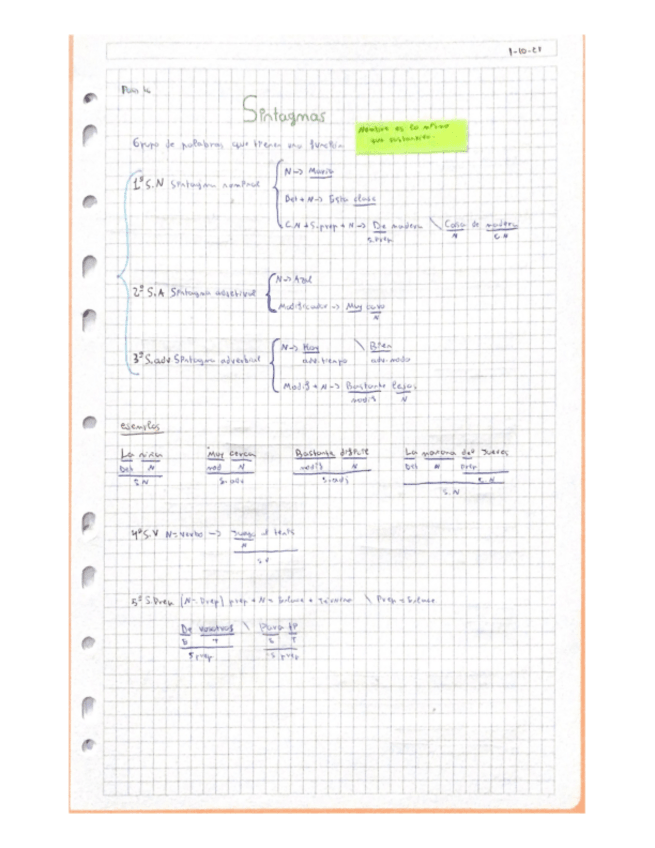 Sintagmas
Nombre es lo mismo
que sustantivo.
Grupo de palabras que tienen una función
1º S.N Sintagma nominal
N -> María
Det + N -> Esta clase
C.N + S.prep + N -> De madera \ Casa de madera
S.Prep N C.N
2º S.A Sintagma adjetival
N -> Azul
Modificador -> Muy
N
3º S.adv Sintagma adverbial
N -> Hoy \ Bien
adv. tiempo adv. modo
Modif + N -> Bastante lejos
modif N
ejemplos
La niña Muy cerca Bastante La mañana del jueves
Det N mod N modif N Det N prep
S.N S.adv S.adj S.N
S.N
4º S.V N = verbo -> Juego al tenis
N
S.V
5º S.Prep (N = Prep) prep + N = Enlace + término \ Prep = Enlace
De vosotros \ Para ti
E T E T
S prep S prep